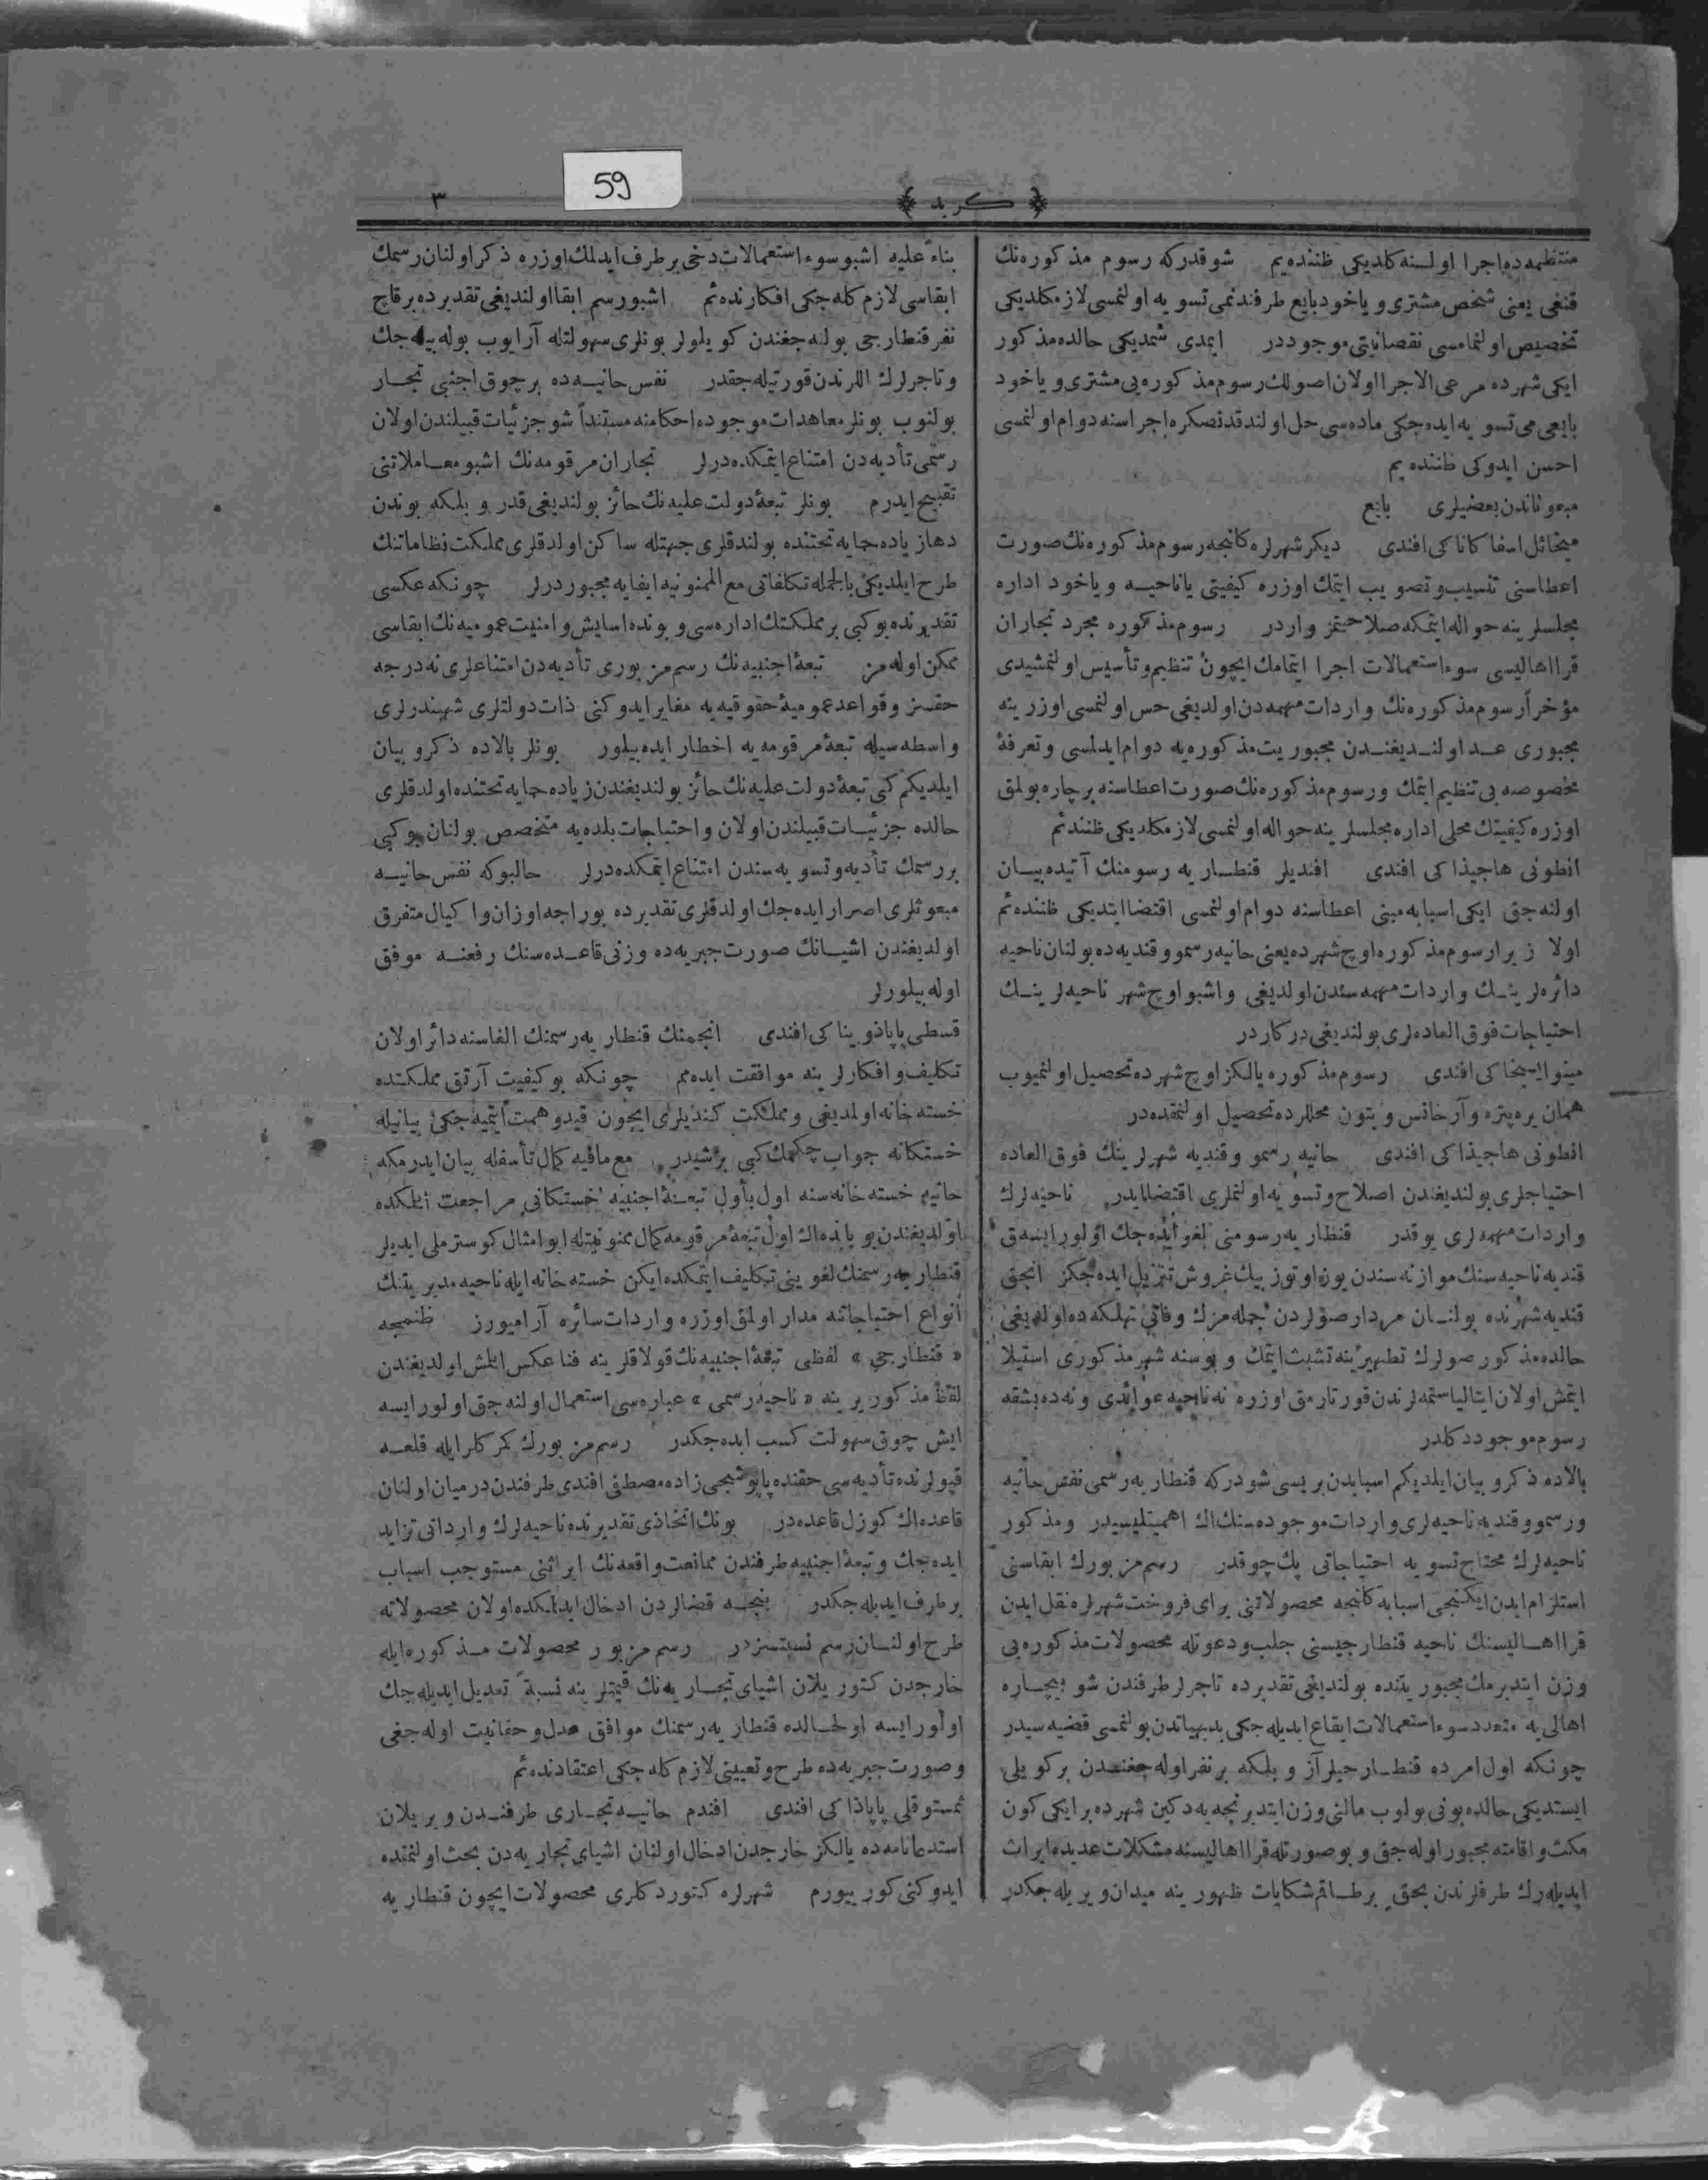 59
﴿ كريد ﴾
٣
منتظمه‌ده اجرا اولنه كلديكى ظننده‌يم شو قدركه رسوم مذكوره‌نك
قنغى يعنى شخص مشترى و ياخود بايع طرفندنمى تسويه اولنمسى لازمكلديكى
تخصيص اولنمامسى نقصانيتى موجوددر ايمدى شمديكى حالده مذكور
ايكى شهرده مرعى الاجرا اولان اصولك رسوم مذكوره‌يى مشترى و ياخود
بايعى مى تسويه ايده‌جكى ماده‌سى حل اولندقدنصكره اجراسنه دوام اولنمسى
احسن ايدوكى ظننده‌يم
مبعوثاندن بعضيلرى بايع
ميخائل اسفاكاناكى افندى ديكر شهرلره كلنجه رسوم مذكوره‌نك صورت
اعطاسنى تنسيب و تصويب ايتمك اوزره كيفيتى يا ناحيه و ياخود اداره
مجلسلرينه حواله ايتمكه صلاحيتمز واردر رسوم مذكوره مجرد تجاران
قرا اهاليسى سوء استعمالات اجرا ايتمامك ايچون تنظيم و تأسيس اولنمشيدى
مؤخراً رسوم مذكوره‌نك واردات مهمه‌دن اولديغى حس اولنمسى اوزرينه
مجبورى عد اولنديغندن مجبوريت مذكوره‌يه دوام ايدلمسى و تعرفۀ
مخصوصه‌يى تنظيم ايتمك و رسوم مذكوره‌نك صورت اعطاسنه بر چاره بولمق
اوزره كيفيتك محلى اداره مجلسلرينه حواله اولنمسى لازمكلديكى ظنندەيم
انطونى هاجيذاكى افندى افنديلر قنطاريه رسومنك آتيده بيان
اولنه‌جق ايكى اسبابه مبنى اعطاسنه دوام اولنمسى اقتضا ايتديكى ظننده‌يم
اولا زيرا رسوم مذكوره اوچ شهرده يعنى حانيه رسمو و قنديه‌ده بولنان ناحيه
دائره‌لرينك واردات مهمه‌سندن اولديغى و اشبو اوچ شهر ناحيه‌لرينك
احتياجات فوق العاده‌لرى بولنديغى دركاردر
مينو ايسيخاكى افندى رسوم مذكوره يالكز اوچ شهرده تحصيل اولنميوب
همان يره‌پتره و آرخانس و بتون محللرده تحصيل اولنمقده‌در
انطونى هاجيذاكى افندى حانيه رسمو و قنديه شهرلرينك فوق العاده
احتياجلرى بولنديغندن اصلاح و تسويه اولنملرى اقتضا ايدر ناحيه‌لرك
واردات مهمه‌لرى يوقدر قنطاريه رسومنى لغو ايده‌جك اولور ايسه‌ق
قنديه ناحيه‌سنك موازنه‌سندن يوز اوتوز بيك غروش تنزيل ايده‌جكز انجق
قنديه شهرنده بولنان مردار صولردن جمله‌مزك وفاتى تهلكه‌ده اولديغى
حالده مذكور صولرك تطهيرينه تشبث ايتمك و بوسنه شهر مذكورى استيلا
ايتمش اولان ايتاليا ستمه‌لرندن قورتارمق اوزره نه ناحيه عوائدى و نه‌ده بشقه
رسوم موجود دكلدر
بالاده ذكر و بيان ايلديكم اسبابدن بريسى شودركه قنطاريه رسمى نفس حانيه
و رسمو و قنديه ناحيه‌لرى واردات موجوده‌سنك اك اهميتليسيدر و مذكور
ناحيه‌لرك محتاج تسويه احتياجاتى پك چوقدر رسم مزبورك ابقاسنى
استلزام ايدن ايكنجى اسبابه كلنجه محصولاتنى براى فروخت شهرلره نقل ايدن
قرا اهاليسنك ناحيه قنطارجيسنى جلب و دعوتله محصولات مذكوره‌يى
وزن ايتديرمك مجبوريتنده بولنديغى تقديرده تاجرلر طرفندن شو بيچاره
اهالى‌يه متعدد سوء استعمالات ايقاع ايديله‌جكى بديهياتدن بولنمسى قضيه‌سيدر
چونكه اول امرده قنطارجيلر آز و بلكه بر نفر اوله‌جغندن بر كويلى
ايستديكى حالده بونى بولوب مالنى وزن ايتديرنجه‌يه دكين شهرده بر ايكى كون
مكث و اقامته مجبور اوله‌جق و بوصورتله قرا اهاليسنه مشكلات عديده ايراث
ايديله‌رك طرفلرندن بحق بر طاقم شكايات ظهورينه ميدان ويريله‌جكدر
بناءً عليه اشبو سوء استعمالات دخى برطرف ايدلمك اوزره ذكر اولنان رسمك
ابقاسى لازم كله‌جكى افكارنده‌يم اشبو رسم ابقا اولنديغى تقديرده بر قاچ
نفر قنطارجى بولنه‌جغندن كويلولر بونلرى سهولتله آرايوب بوله بيله‌جك
و تاجرلرك اللرندن قورتيله‌جقدر نفس حانيه‌ده بر چوق اجنبى تجار
بولنوب بونلر معاهدات موجوده احكامنه مستنداً شو جزئيات قبيلندن اولان
رسمى تأديه‌دن امتناع ايتمكده‌درلر تجاران مرقومه‌نك اشبو معاملاتنى
تقبيح ايدرم بونلر تبعۀ دولت عليه‌نك حائز بولنديغى قدر و بلكه بوندن
دها زياده حمايه تحتنده بولندقلرى جهتله ساكن اولدقلرى مملكت نظاماتنك
طرح ايلديكى بالجمله تكلفاتى مع الممنونيه ايفايه مجبوردرلر چونكه عكسى
تقديرنده بوكبى بر مملكتك اداره‌سى و بونده اسايش و امنيت عموميه‌نك ابقاسى
ممكن اوله‌مز تبعۀ اجنبيه‌نك رسم مزبورى تأديه‌دن امتناعلرى نه درجه
حقسز و قواعد عموميۀ حقوقيه‌يه مغاير ايدوكنى ذات دولتلرى شهبندرلرى
واسطه‌سيله تبعۀ مرقومه‌يه اخطار ايده بيلور بونلر بالاده ذكر و بيان
ايلديكم كبى تبعۀ دولت عليه‌نك حائز بولنديغندن زياده حمايه تحتنده اولدقلرى
حالده جزئيات قبيلندن اولان و احتياجات بلديه‌يه متخصص بولنان بوكبى
بر رسمك تأديه و تسويه‌سندن امتناع ايتمكده‌درلر حالبوكه نفس حانيه
مبعوثلرى اصرار ايده‌جك اولدقلرى تقديرده بوراجه اوزان و اكيال متفرق
اولديغندن اشيانك صورت جبريه‌ده وزنى قاعده‌سنك رفعنه موفق
اوله بيلورلر
قسطى پاپاذويناكى افندى انجمنك قنطاريه رسمنك الغاسنه دائر اولان
تكليف و افكارلرينه موافقت ايده‌مم چونكه بو كيفيت آرتق مملكتده
خسته‌خانه اولمديغى و مملكت كنديلرى ايچون قيد و همت ايتميه‌جكى بيانيله
خستكانه جواب چكمك كبى برشيدر مع مافيه كمال تأسفله بيان ايدرمكه
حانيه خسته‌خانه‌سنه اول باول تبعۀ اجنبيه خستكانى مراجعت ايلمكده
اولديغندن بو بابده اك اول تبعۀ مرقومه كمال ممنونيتله ابو امثال كوسترملى ايديلر
قنطاريه رسمنك لغوينى تكليف ايتمكده ايكن خسته‌خانه ايله ناحيه مديريتنك
انواع احتياجاتنه مدار اولمق اوزره واردات سائره آراميورز ظنمجه
« قنطارجى » لفظى تبعۀ اجنبيه‌نك قولاقلرينه فنا عكس ايلمش اولديغندن
لفظ مذكور يرينه « ناحيه رسمى » عباره‌سى استعمال اولنه‌جق اولور ايسه
ايش چوق سهولت كسب ايده‌جكدر رسم مزبورك كمركلر ايله قلعه
قپولرنده تأديه‌سى حقنده پاپوشجى زاده مصطفى افندى طرفندن درميان اولنان
قاعده اك كوزل قاعده‌در بونك اتخاذى تقديرنده ناحيه‌لرك وارداتى تزايد
ايده‌جك و تبعۀ اجنبيه طرفندن ممانعت واقعه‌نك ايراثنى مستوجب اسباب
برطرف ايديله‌جكدر بنجه قضالردن ادخال ايدلمكده اولان محصولاته
طرح اولنان رسم نسبتسزدر رسم مزبور محصولات مذكوره ايله
خارجدن كتوريلان اشياى تجاريه‌نك قيمتلرينه نسبةً تعديل ايديله‌جك
اولور ايسه اولحالده قنطاريه رسمنك موافق عدل و حقانيت اوله‌جغى
و صورت جبريه‌ده طرح و تعيينى لازم كله‌جكى اعتقادنده‌يم
ثمستوقلى پاپاذاكى افندى افندم حانيه تجارى طرفندن ويريلان
استدعانامه‌ده يالكز خارجدن ادخال اولنان اشياى تجاريه‌دن بحث اولنمقده
ايدوكنى كورييورم شهرلره كتوردكلرى محصولات ايچون قنطاريه